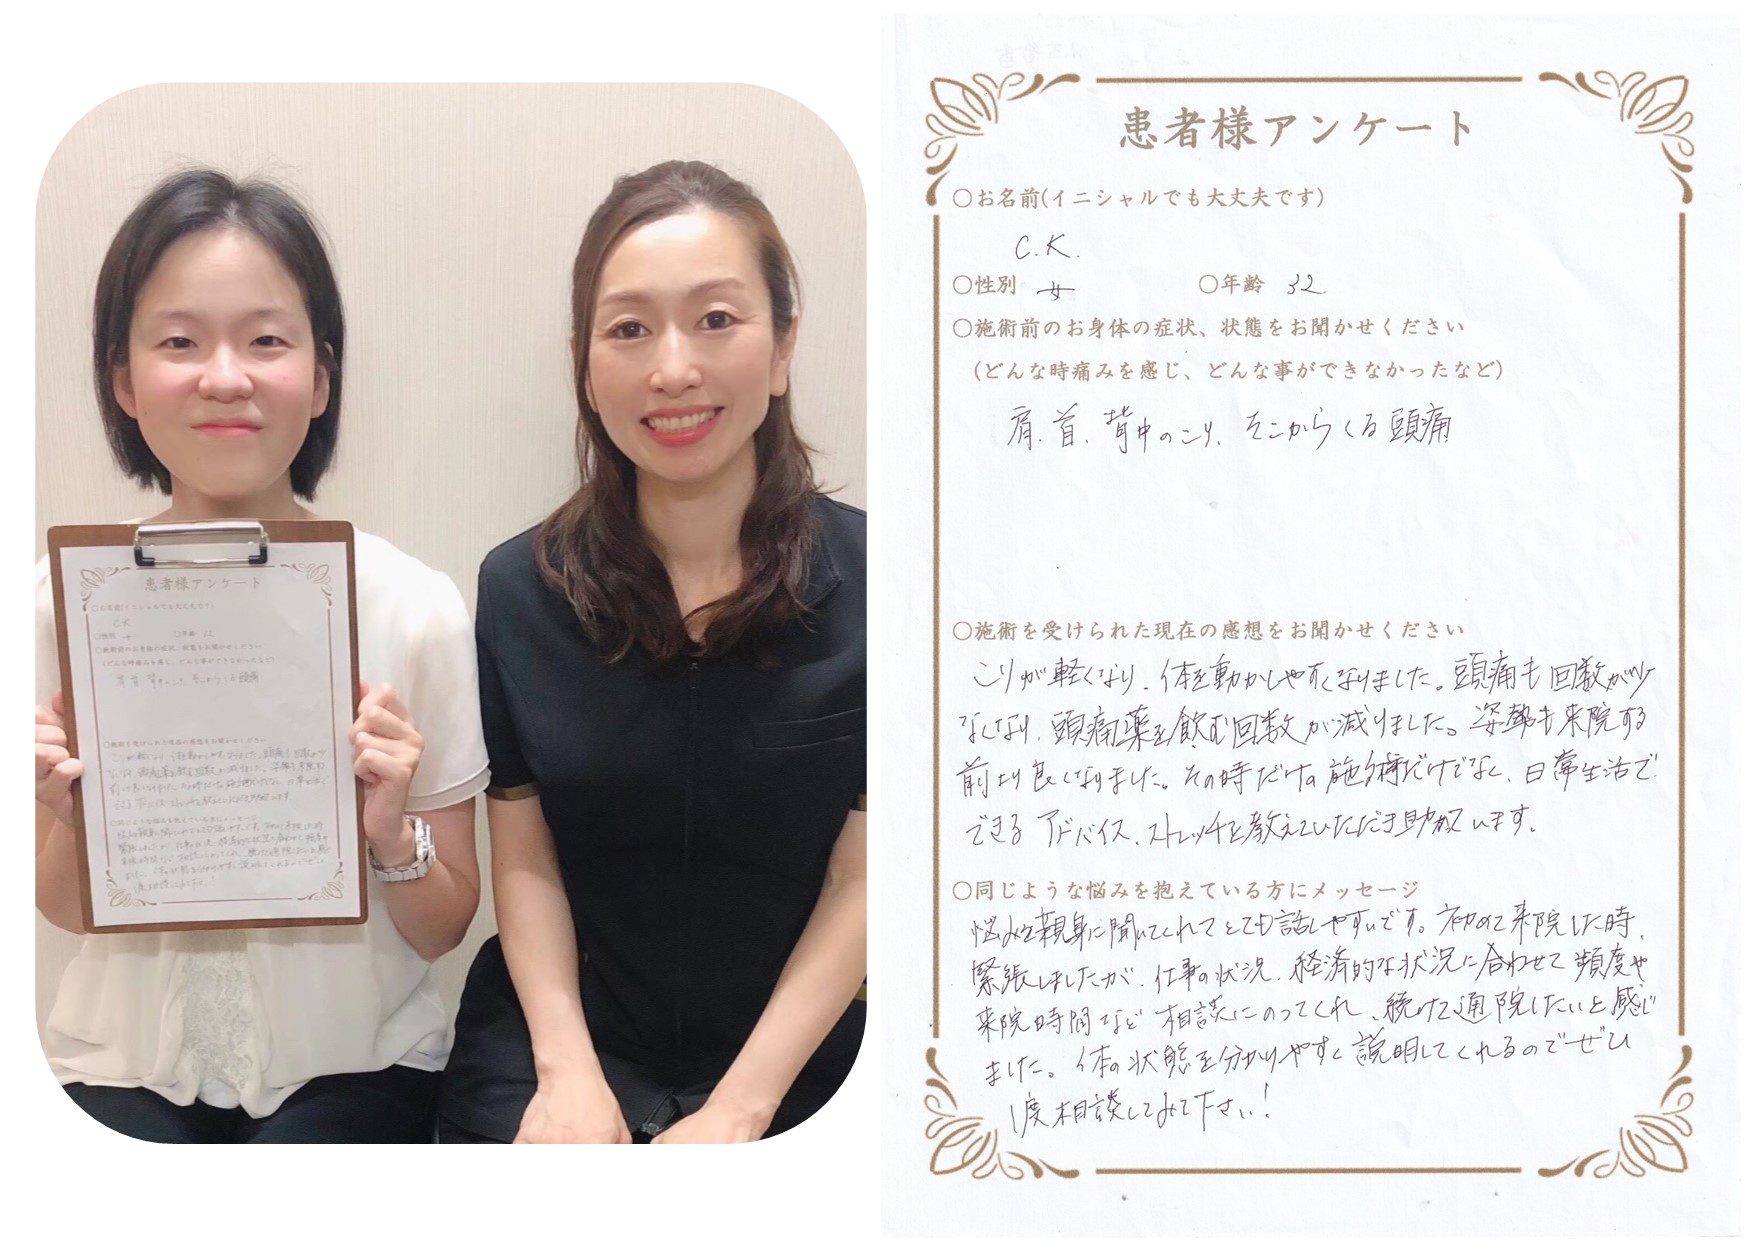 患者様アンケート
○お名前(イニシャルでも大丈夫です)
C.K.
○性別 女 ○年齢 32
○施術前のお身体の症状、状態をお聞かせください
(どんな時痛みを感じ、どんな事ができなかったなど)
肩、首、背中のこり、そこからくる頭痛
○施術を受けられた現在の感想をお聞かせください
こりが軽くなり、体を動かしやすくなりました。頭痛も回数が少
なくなり、頭痛薬を飲む回数が減りました。姿勢も来院する
前より良くなりました。その時だけの施術だけでなく、日常生活で
できるアドバイス、ストレッチを教えていただき助かっています。
○同じような悩みを抱えている方にメッセージ
悩みを親身に聞いてくれてとても話しやすいです。初めて来院した時、
緊張しましたが、仕事の状況、経済的な状況に合わせて頻度や
来院時間など相談にのってくれ、続けて通院したいと感じ
ました。体の状態を分かりやすく説明してくれるのでぜひ
1度相談してみて下さい!